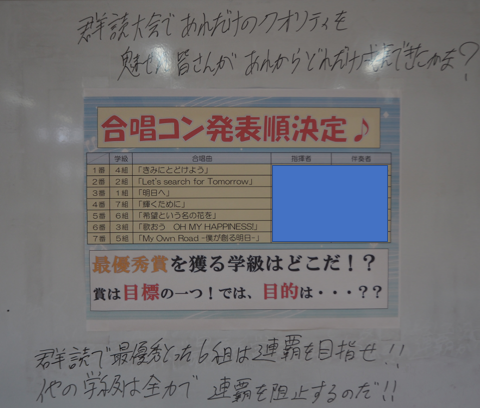 群読大会であれだけのクオリティを
魅せた皆さんが あれからどれだけ成長できたかな?
合唱コン発表順決定♪
学組 合唱曲 指揮者 伴奏者
1番 4組 「きみにとどけよう」
2番 2組 「Let's search for Tomorrow」
3番 1組 「明日へ」
4番 7組 「輝くために」
5番 6組 「希望という名の花を」
6番 3組 「歌おう OH MY HAPPINESS!」
7番 5組 「My Own Road -僕が創る明日-」
最優秀賞を獲る学級はどこだ!?
賞は目標の一つ!では、目的は・・・??
群読で最優秀とった6組は連覇を目指せ!!
他の学級は全力で 連覇を阻止するのだ!!